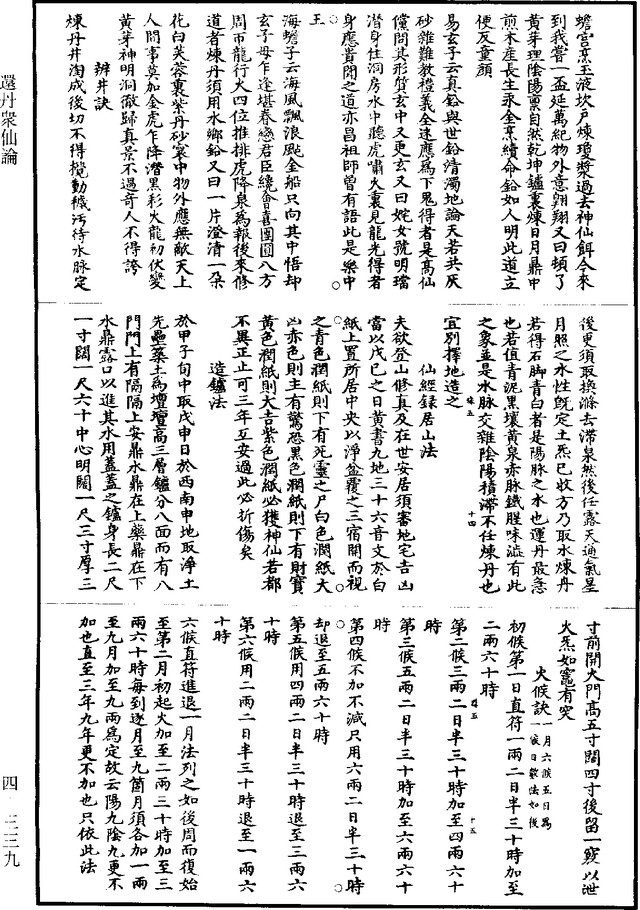 還丹衆仙論
蟾宮烹玉液坎戶煉瓊漿過去神仙餌今來
到我嘗一盃延萬紀物外意翱翔又曰頓了
黃芽理陰陽稟自然乾坤鑪裏煉日月鼎中
煎木產長生汞金烹續命鉛如人明此道立
便反童顏
易玄子云真鉛與世鉛清濁地論天若共灰
砂雜難教禮義全速應爲下鬼得者是高仙
儻問其形質玄中又更玄又曰姹女號明璫
潛身住洞房水中聽虎嘯火裏見龍光得者
身應貴聞之道亦昌祖師曾有語此是藥中
王
海蟾子云海風飄浪颭金船只向其中悟却
玄子母乍逢堪眷戀君臣纔會喜團圓八方
周帀龍行火四位推排虎降泉爲報後來修
道者煉丹須用水鄉鉛又曰一片澄清一朶
花白芙蓉裏紫丹砂寰中物外應無敵天上
人間事莫加金虎乍降潛黑彩火龍初伏變
黃芽神明洞徹歸真景不遇奇人不得誇
辨井訣
煉丹井淘成後切不得攪動穢汚待水脉定
後更須取換滌去滯泉然後任露天通氣星
月照之水性旣定土炁已收方乃取水煉丹
若得石脚青白者是陽脉之水也運丹最急
也若值青泥黑壤黃泉赤脉鐵腥味澁有此
之象並是水脉交雜陰陽積滯不任煉丹也
宜別擇地造之
仙經録居山法
夫欲登山修真及在世安居須審地宅吉凶
當以戊巳之日黃書九地三十六音文於白
紙上置所居中央以淨盆覆之三宿開而視
之青色潤紙則下有死靈之尸白色潤紙大
凶赤色則主有驚恐黑色潤紙則下有財寶
黃色潤紙則大吉紫色潤紙必獲神仙若都
不異正止可三年五安過此必折傷矣
造鑪法
於甲子旬中取戊申日於西南申地取淨土
先壘築土爲壇壇高三層鑪分八面而有八
門門上有隔隔上安鼎水鼎在上藥鼎在下
水鼎露口以進其水用蓋蓋之鑪身長二尺
一寸闊一尺六十中心明闊一尺三寸厚三
寸前開火門高五寸闊四寸後留一竅以泄
火炁如竈有突
火候訣一月六候五日爲一候日數法如後
初候第一日直符一兩二日半三十時加至
二兩六十時
第二候三兩二日半三十時加至四兩六十
時
第三候五兩二日半三十時加至六兩六十
時
第四候不加不減只用六兩二日半三十時
却退至五兩六十時
第五候用四兩二日半三十時退至三兩六
十時
第六候用二兩二日半三十時退至一兩六
十時
六候直符進退一月法列之如後周而復始
至第二月初起火加至二兩三十時加至三
兩六十時每到逐月至九箇月須各加一兩
至九月加至九兩爲定故云陽九陰九更不
加也直至三年九年更不加也只依此法
四‧三三九